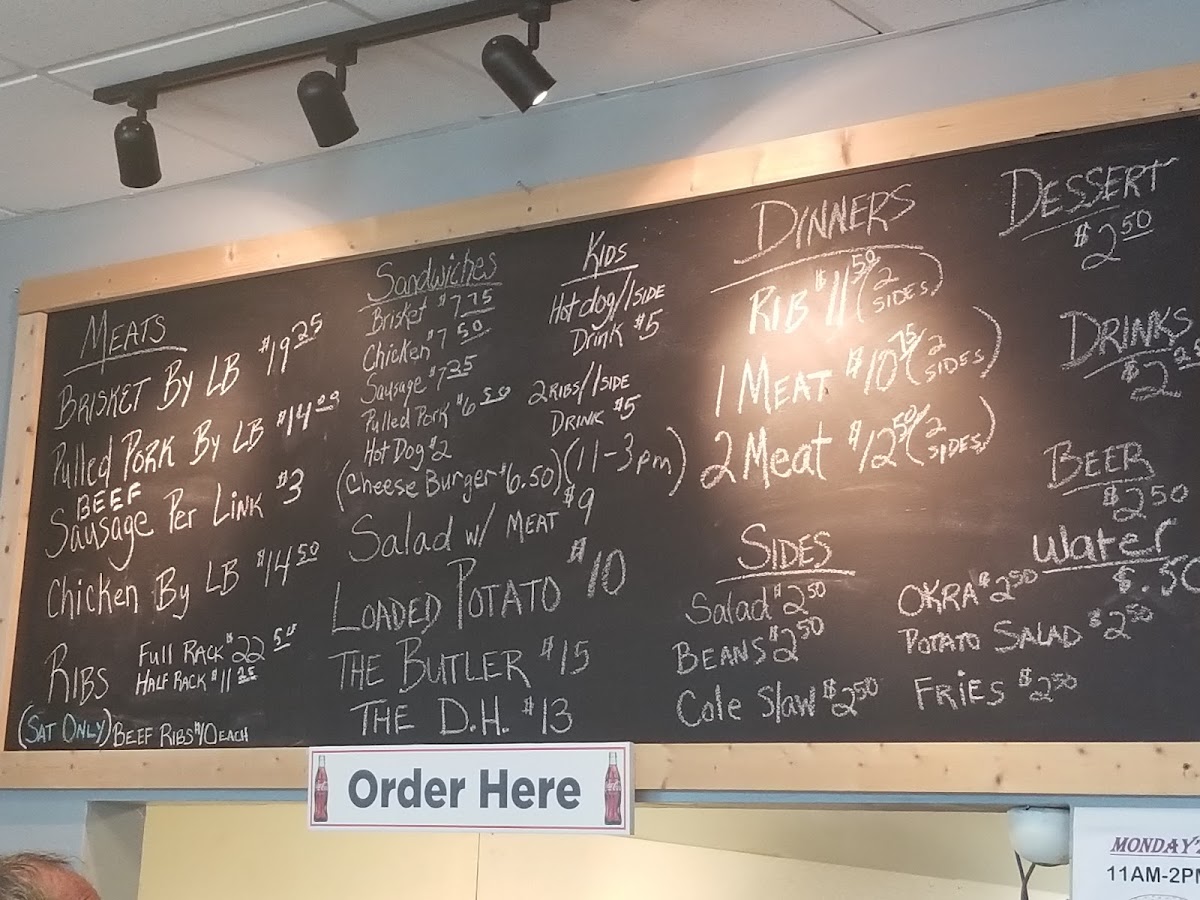 MEATS
BRISKET BY LB $19.25
Pulled PORK By LB $14.00
BEEF
Sausage Per LINK $3
Chicken By LB $14.50
RIBS
Full RACK $22.50
HALF RACK $11.25
(SAT ONLY) BEEF RIBS $10 EACH
Sandwiches
Brisket $7.75
Chicken $7.50
Sausage $7.25
Pulled Pork $6.50
Hot Dog $2
(Cheese Burger $6.50) (11-3pm)
Salad w/ MEAT $9
LOADED POTATO $10
THE BUTLER $15
THE D.H. $13
KIDS
Hot dog/1 SIDE
Drink $5
2 RIBS/1 SIDE
DRINK $5
DINNERS
RIB $11.50 (2 SIDES)
1 MEAT $10.75 (2 SIDES)
2 Meat $12.50 (2 SIDES)
SIDES
Salad $2.50
BEANS $2.50
Cole Slaw $2.50
OKRA $2.50
POTATO SALAD $2.50
FRIES $2.50
DESSERT
$2.50
DRINKS
$2
BEER
$2.50
Water
$.50
Order Here
11AM-2PM